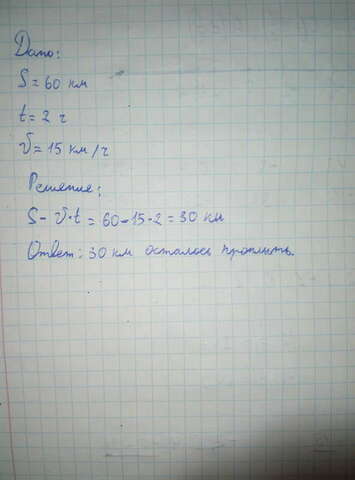 Дано:
S = 60 км
t = 2 ч
V = 15 км/ч
Решение:
S - V·t = 60-15·2 = 30 км
Ответ: 30 км осталось проплыть.